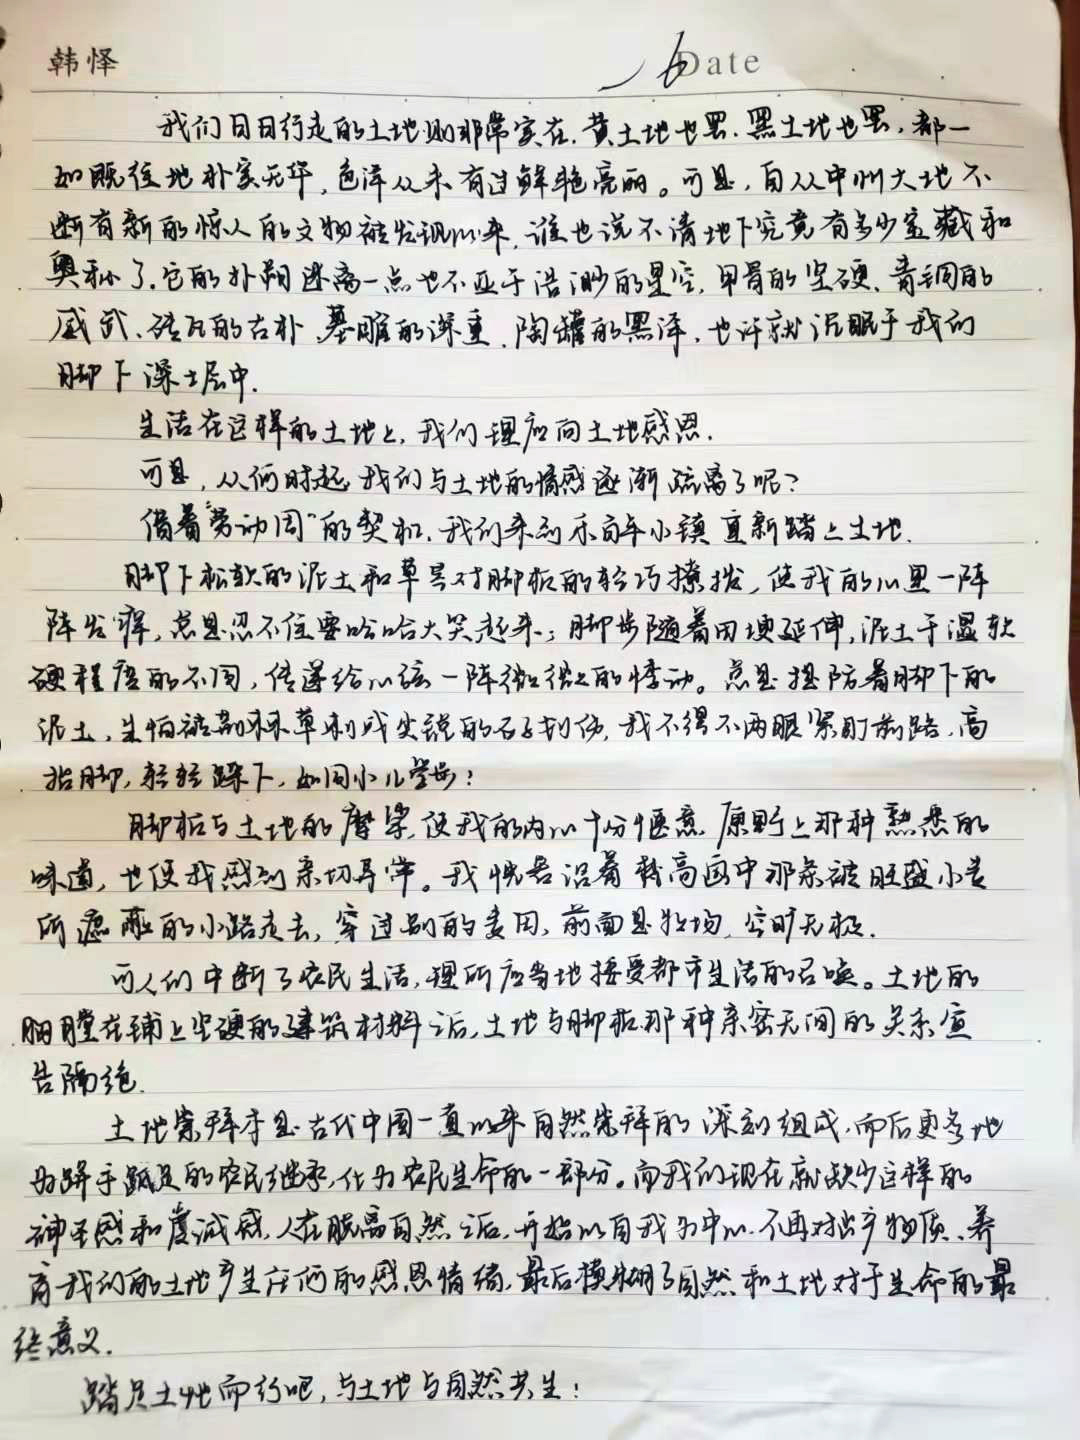 韩怿
Date
我们日日行走的土地则非常实在.黄土地也罢.黑土地也罢,都一
如既往地朴实无华,色泽从来有过鲜艳亮丽。可是,自从中州大地不
断有新的惊人的文物被发现以来,谁也说不清地下究竟有多少宝藏和
奥秘了.它的扑朔迷离一点也不亚于浩渺的星空,甲骨的坚硬、青铜的
威武、砖瓦的古朴、墓雕的深重、陶罐的黑泽,也许就沉眠于我们
脚下深土层中.
生活在这样的土地上,我们理应向土地感恩.
可是,从何时起我们与土地的情感逐渐疏离了呢?
借着"劳动周"的契机,我们来到禾小镇重新踏上土地.
脚下松软的泥土和草茎对脚板的轻巧撩拨,使我的心里一阵
阵发痒,总是忍不住要哈哈大笑起来;脚步随着田埂延伸,泥土干湿软
硬程度的不同,传递给心弦一阵微微的悸动。总是提防着脚下的
泥土,生怕被荆棘草刺或尖锐的石子划伤,我不得不两眼紧盯前路,高
抬脚,轻轻踩下,如同小儿学步!
脚板与土地的摩挲,使我的内心十分惬意.原野上那种熟悉的
味道,也使我感到亲切异常。我恍若沿着梵高画中那条被旺盛小麦
所遮蔽的小路走去,穿过的麦田,前面是牧场,空旷无极.
可人们中断了农民生活,理所应当地接受都市生活的召唤。土地的
胸膛在铺上坚硬的建筑材料之后,土地与脚板那种亲密无间的关系宣
告隔绝.
土地崇拜本是古代中国一直以来自然崇拜的深刻组成,而后更多地
为胼手胝足的农民继承,化为农民生命的一部分。而我们现在就缺少这样的
神圣感和虔诚感,人在脱离自然之后,开始以自我为中心.不再对出产物质、养
育我们的土地产生任何的感恩情绪,最后模糊了自然和土地对于生命的最
终意义.
踏足土地而行吧,与土地与自然共生!